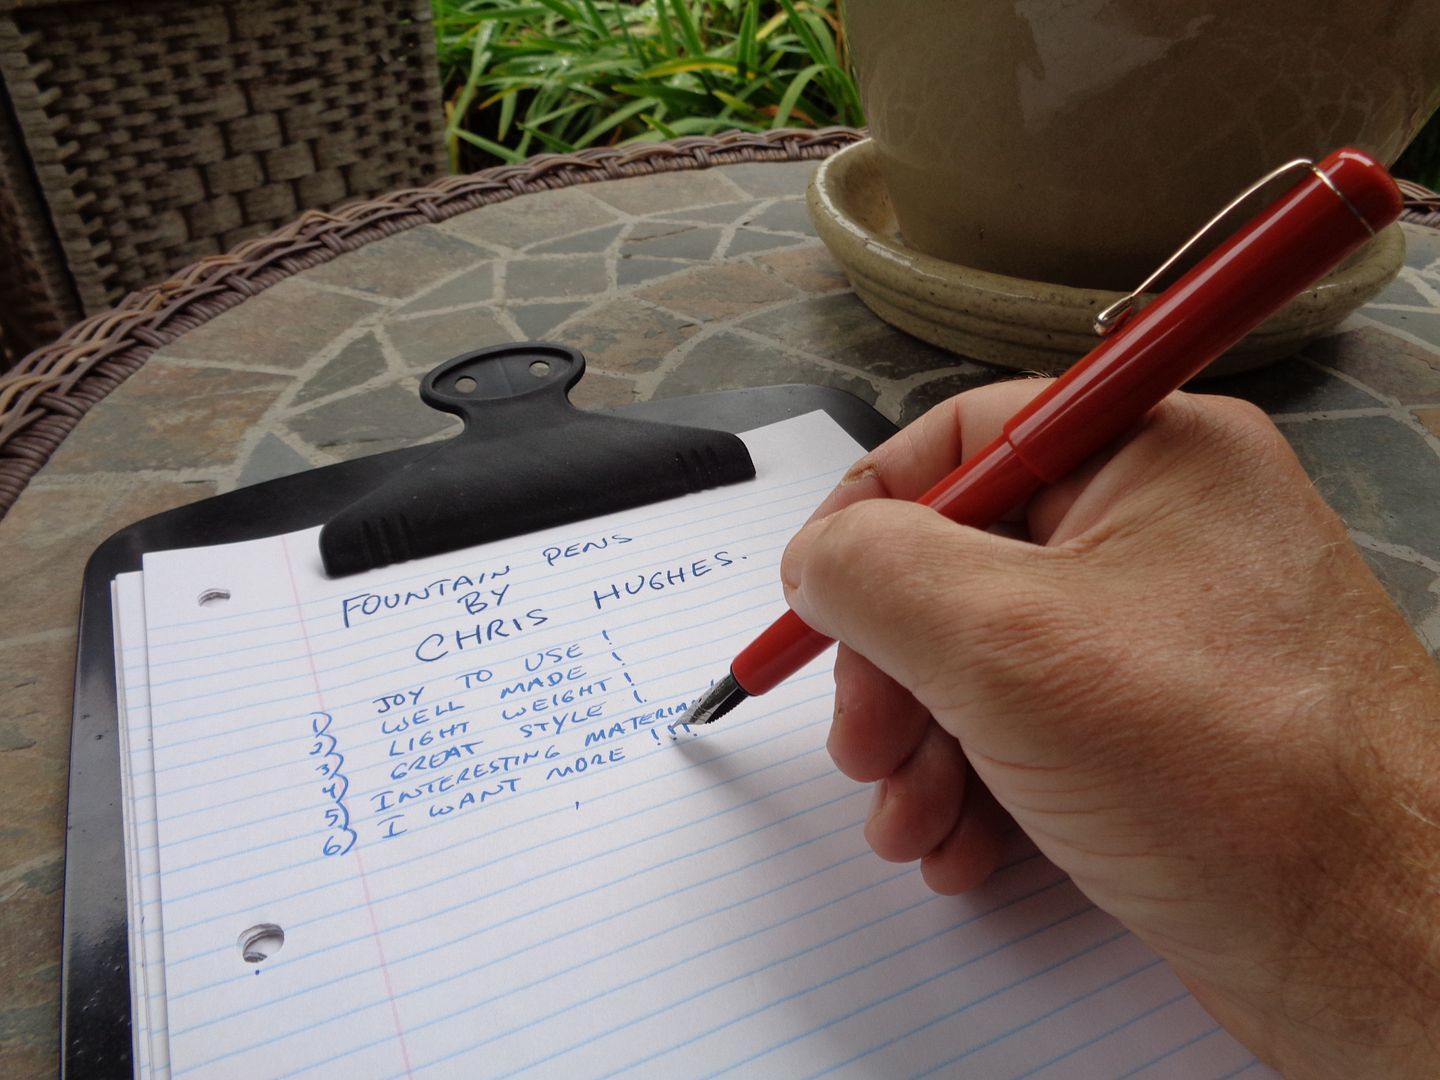 FOUNTAIN PENS
BY
CHRIS HUGHES.
1) JOY TO USE !
2) WELL MADE !
3) LIGHT WEIGHT !
4) GREAT STYLE !
5) INTERESTING
6) I WANT MORE !!!